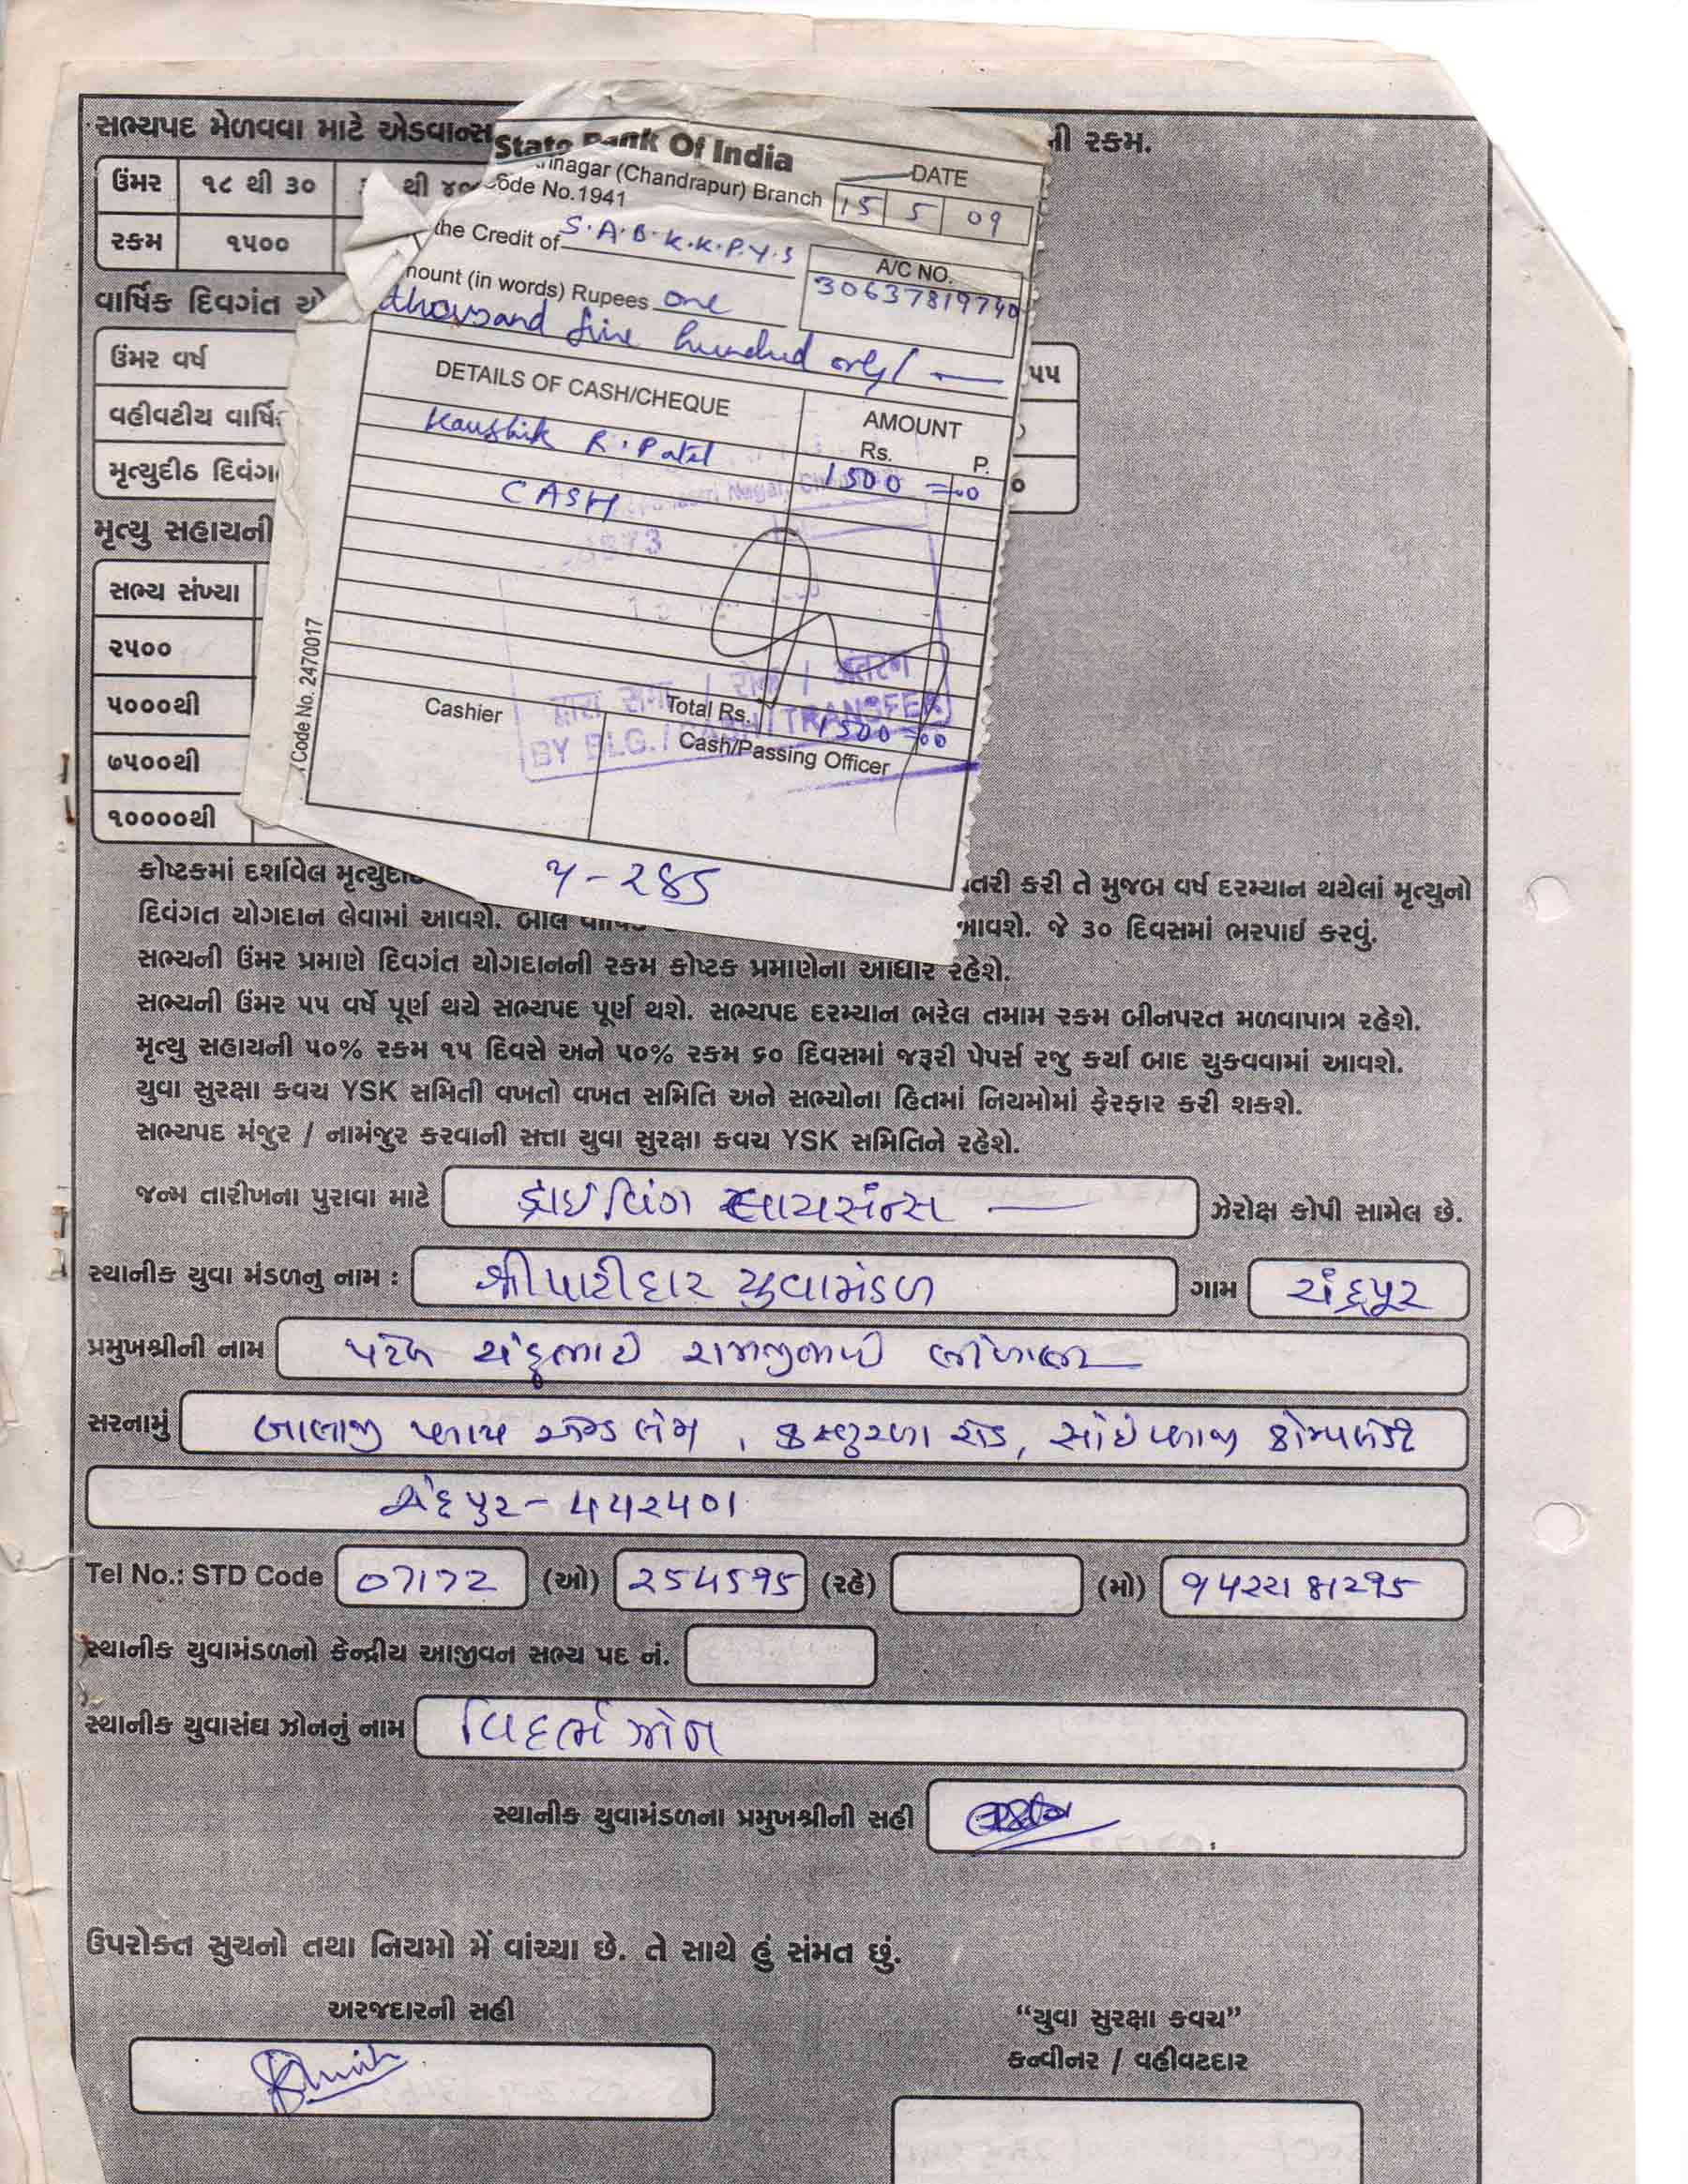 સભ્યપદ મેળવવા માટે એડવાન્સ
ની રકમ.
ઉંમર ૧૮ થી ૩૦ થી ૪૦
રકમ ૧૫૦૦
વાર્ષિક દિવગંત
ઉંમર વર્ષ ૫૫
વહીવટીય
મૃત્યુદીઠ
મૃત્યુ સહાયની
સભ્ય સંખ્યા
૨૫૦૦
૫૦૦૦થી
૭૫૦૦થી
૧૦૦૦૦થી
State Bank Of India
(Chandrapur) Branch
Code No.1941
DATE
15 5 09
the Credit of S.A.B.K.K.P.Y.S
A/C NO.
30637819740
(in words) Rupees one
thousand five hundred only/
DETAILS OF CASH/CHEQUE AMOUNT
Rs. P.
Kaushik R. Patel 1500 =00
CASH
Total Rs. 1500=00
Cashier
Cash/Passing Officer
Code No. 2470017
TRANSFER
ય-૨૪૬
કોષ્ટકમાં દર્શાવેલ કરી તે મુજબ વર્ષ દરમ્યાન થયેલાં મૃત્યુનો
દિવંગત યોગદાન લેવામાં આવશે. આવશે. જે ૩૦ દિવસમાં ભરપાઈ કરવું.
સભ્યની ઉંમર પ્રમાણે દિવગંત યોગદાનની રકમ કોષ્ટક પ્રમાણેના આધારે રહેશે.
સભ્યની ઉંમર ૫૫ વર્ષે પૂર્ણ થયે સભ્યપદ પૂર્ણ થશે. સભ્યપદ દરમ્યાન ભરેલ તમામ રકમ બીનપરત મળવાપાત્ર રહેશે.
મૃત્યુ સહાયની ૫૦% રકમ ૧૫ દિવસે અને ૫૦% રકમ ૬૦ દિવસમાં જરૂરી પેપર્સ રજુ કર્યા બાદ ચુકવવામાં આવશે.
યુવા સુરક્ષા કવચ YSK સમિતી વખતો વખત સમિતિ અને સભ્યોના હિતમાં નિયમોમાં ફેરફાર કરી શકશે.
સભ્યપદ મંજુર / નામંજુર કરવાની સત્તા યુવા સુરક્ષા કવચ YSK સમિતિને રહેશે.
જન્મ તારીખના પુરાવા માટે ડ્રાઇવિંગ લાયસંન્સ ઝેરોક્ષ કોપી સામેલ છે.
સ્થાનીક યુવા મંડળનુ નામ : શ્રી પાટીદાર યુવામંડળ ગામ ચંદ્રપૂર
પ્રમુખશ્રીની નામ પટેલ ચંદુભાઈ રામજીભાઈ
સરનામું બાલાજી પ્લાય એન્ડ લેમ , કસ્તુરબા રોડ,
ચંદ્રપુર - 442401
Tel No.: STD Code 07172 (ઓ) 254595 (રહે) (મો)
સ્થાનીક યુવામંડળનો કેન્દ્રીય આજીવન સભ્ય પદ નં.
સ્થાનીક યુવાસંઘ ઝોનનું નામ વિદર્ભ ઝોન
સ્થાનીક યુવામંડળના પ્રમુખશ્રીની સહી
ઉપરોક્ત સુચનો તથા નિયમો મેં વાંચ્યા છે. તે સાથે હું સંમત છું.
અરજદારની સહી
“યુવા સુરક્ષા કવચ”
કન્વીનર / વહીવટદાર